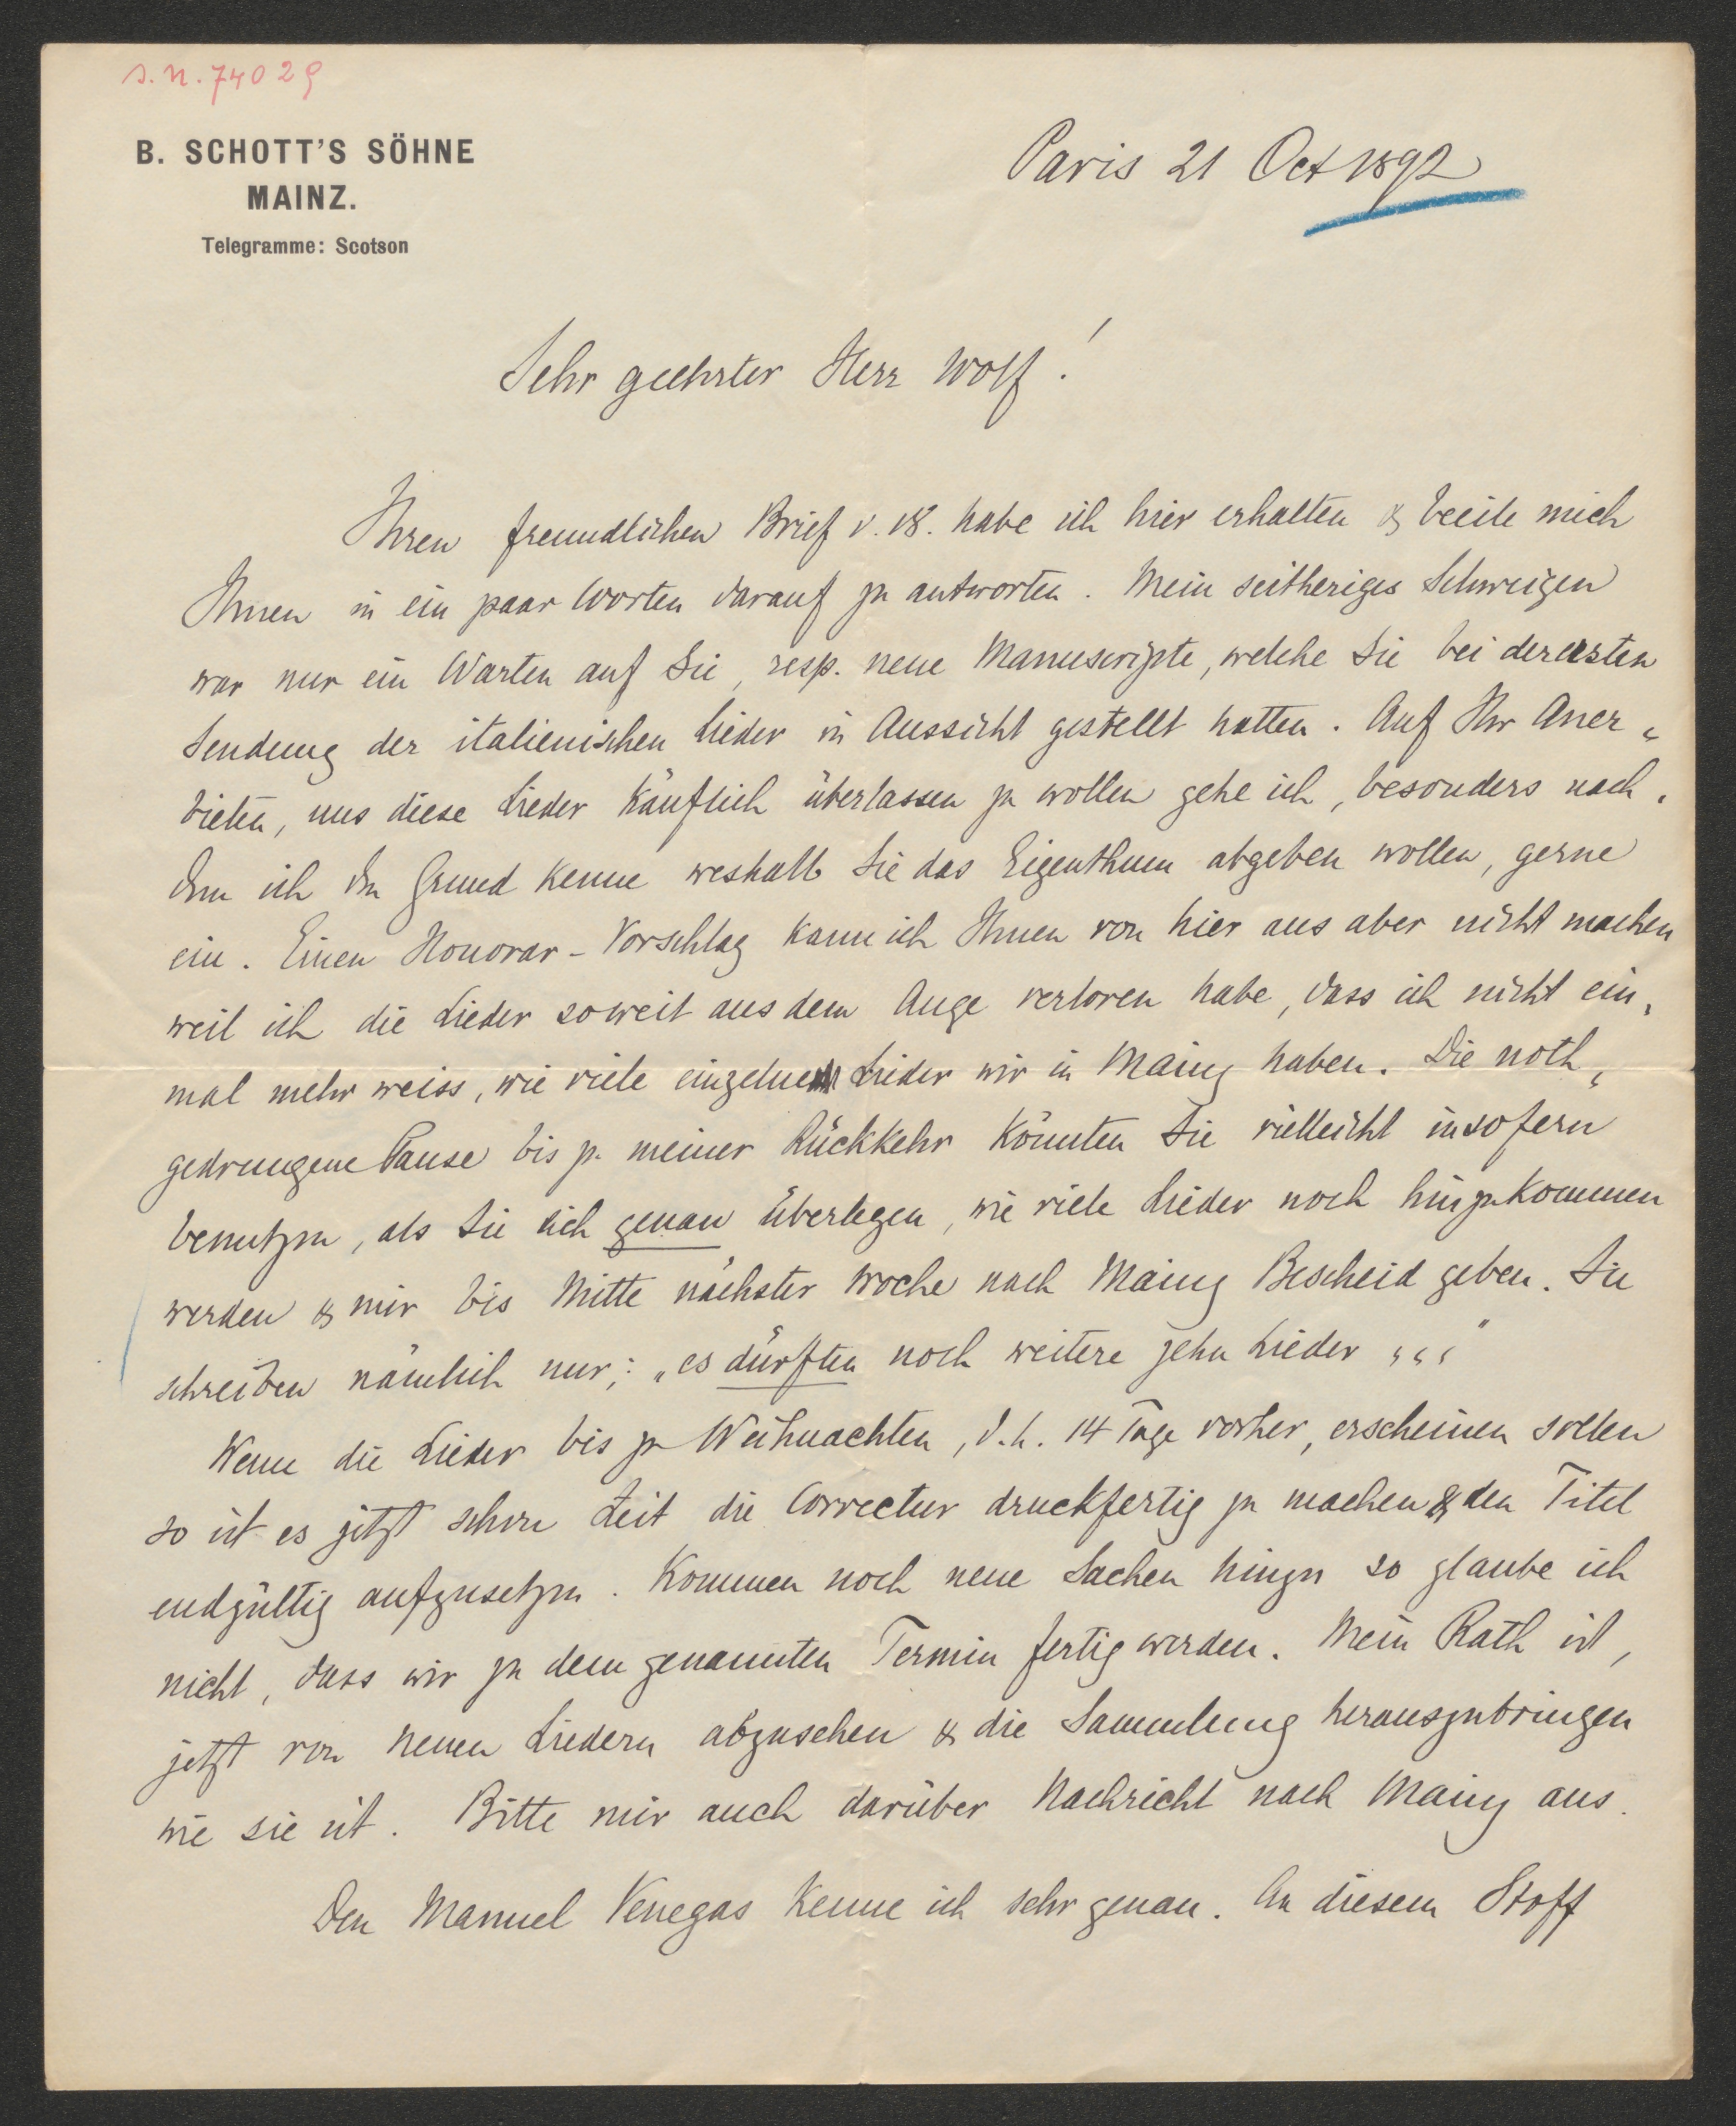 I. N. 74029
B. SCHOTT'S SÖHNE
MAINZ.
Telegramme: Scotson
Paris 21 Oct 1892
Sehr geehrter Herr Wolf!
Ihren freundlichen Brief v. 18. habe ich hier erhalten & beeile mich
Ihnen in ein paar Worten darauf zu antworten. Mein seitheriges Schweigen
war nur ein Warten auf Sie, resp. neue Manuscripte, welche Sie bei der ersten
Sendung der italienischen Lieder in Aussicht gestellt hatten. Auf Ihr Aner„
bieten, uns diese Lieder käuflich überlassen zu wollen gehe ich, besonders nach„
dem ich den Grund kenne weshalb Sie das Eigenthum abgeben wollen, gerne
ein. Einen Honorar-Vorschlag kann ich Ihnen von hier aus aber nicht machen
weil ich die Lieder soweit aus dem Auge verloren habe, dass ich nicht ein„
mal mehr weiss, wie viele einzelne Lieder wir in Mainz haben. Die noth„
gedrungene Pause bis z. meiner Rückkehr könnten Sie vielleicht insofern
benutzen, als Sie sich genau überlegen, wie viele Lieder noch hinzukommen
werden & mir bis Mitte nächster Woche nach Mainz Bescheid geben. Sie
schreiben nämlich nur: „es dürften noch weitere zehn Lieder „„„"
Wenn die Lieder bis zu Weihnachten, d.h. 14 Tage vorher, erscheinen sollen
so ist es jetzt schon Zeit die Correctur druckfertig zu machen & den Titel
endgültig aufzusetzen. Kommen noch neue Sachen hinzu so glaube ich
nicht, dass wir zu dem genannten Termin fertig werden. Mein Rath ist,
jetzt von neuen Liedern abzusehen & die Sammlung herauszubringen
wie sie ist. Bitte mir auch darüber Nachricht nach Mainz aus.
Den Manuel Venegas kenne ich sehr genau. An diesem Stoff